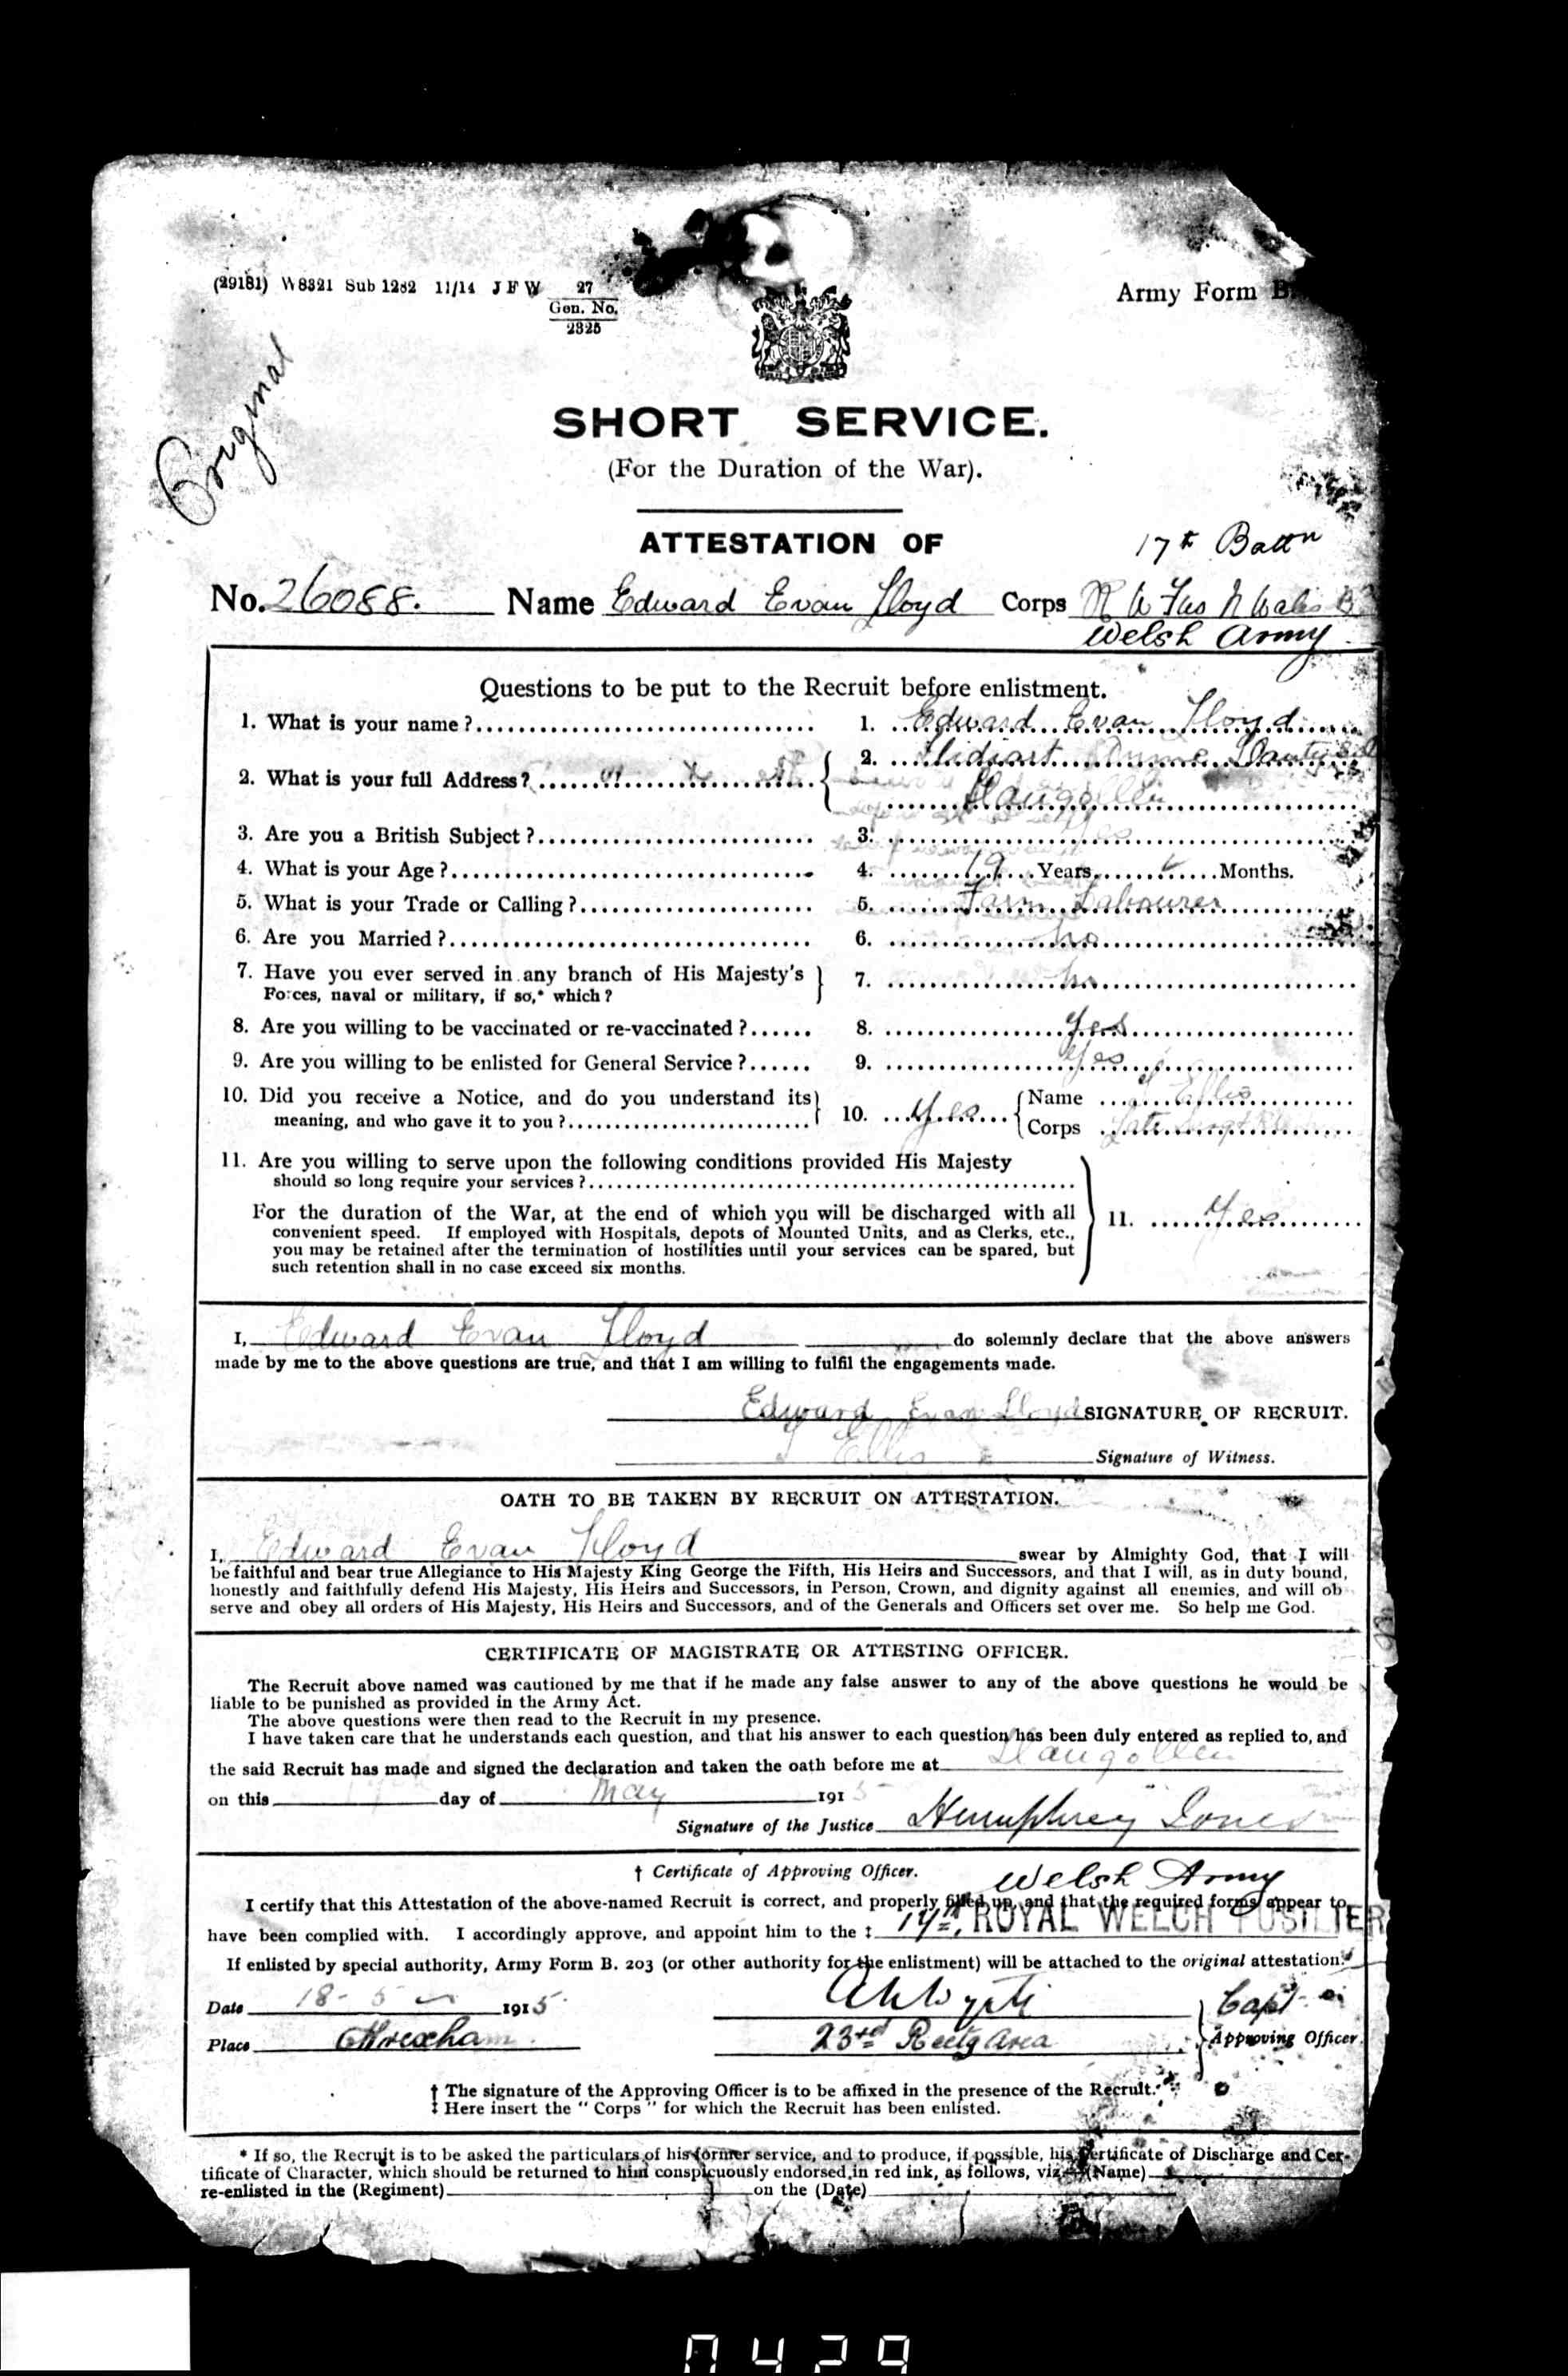 (29181) W8321 Sub 1282 11/14 J F W 27
Gen. No.
2325
Army Form B.
Original
SHORT SERVICE.
(For the Duration of the War).
ATTESTATION OF
17th Battn
No. 26088. Name Edward Evan Lloyd Corps R W Fus N Wales
Welsh Army
Questions to be put to the Recruit before enlistment.
1. What is your name? 1. Edward Evan Lloyd
2. What is your full Address? 2. Llidiart
Llangollen
3. Are you a British Subject? 3. Yes
4. What is your Age? 4. 19 Years Months.
5. What is your Trade or Calling? 5. Farm Labourer
6. Are you Married? 6. no
7. Have you ever served in any branch of His Majesty's
Forces, naval or military, if so,* which? 7. no
8. Are you willing to be vaccinated or re-vaccinated? 8. Yes
9. Are you willing to be enlisted for General Service? 9. Yes
10. Did you receive a Notice, and do you understand its
meaning, and who gave it to you? 10. Yes Name Ellis
Corps Late Sergt
11. Are you willing to serve upon the following conditions provided His Majesty
should so long require your services?
For the duration of the War, at the end of which you will be discharged with all
convenient speed. If employed with Hospitals, depots of Mounted Units, and as Clerks, etc.,
you may be retained after the termination of hostilities until your services can be spared, but
such retention shall in no case exceed six months.
11. Yes
I, Edward Evan Lloyd do solemnly declare that the above answers
made by me to the above questions are true, and that I am willing to fulfil the engagements made.
Edward Evan Lloyd SIGNATURE OF RECRUIT.
Ellis Signature of Witness.
OATH TO BE TAKEN BY RECRUIT ON ATTESTATION.
I, Edward Evan Lloyd swear by Almighty God, that I will
be faithful and bear true Allegiance to His Majesty King George the Fifth, His Heirs and Successors, and that I will, as in duty bound,
honestly and faithfully defend His Majesty, His Heirs and Successors, in Person, Crown, and dignity against all enemies, and will ob-
serve and obey all orders of His Majesty, His Heirs and Successors, and of the Generals and Officers set over me. So help me God.
CERTIFICATE OF MAGISTRATE OR ATTESTING OFFICER.
The Recruit above named was cautioned by me that if he made any false answer to any of the above questions he would be
liable to be punished as provided in the Army Act.
The above questions were then read to the Recruit in my presence.
I have taken care that he understands each question, and that his answer to each question has been duly entered as replied to, and
the said Recruit has made and signed the declaration and taken the oath before me at Llangollen
on this day of May 1915
Signature of the Justice Humphrey Jones
† Certificate of Approving Officer.
Welsh Army
I certify that this Attestation of the above-named Recruit is correct, and properly filled up, and that the required forms appear to
have been complied with. I accordingly approve, and appoint him to the ‡ 17th ROYAL WELCH FUSILIER
If enlisted by special authority, Army Form B. 203 (or other authority for the enlistment) will be attached to the original attestation.
Date 18-5 1915. Capt
Place Wrexham. 23rd Rectg Area Approving Officer.
† The signature of the Approving Officer is to be affixed in the presence of the Recruit.
‡ Here insert the "Corps" for which the Recruit has been enlisted.
* If so, the Recruit is to be asked the particulars of his former service, and to produce, if possible, his Certificate of Discharge and Cer-
tificate of Character, which should be returned to him conspicuously endorsed in red ink, as follows, viz.—(Name)
re-enlisted in the (Regiment) on the (Date)
0429